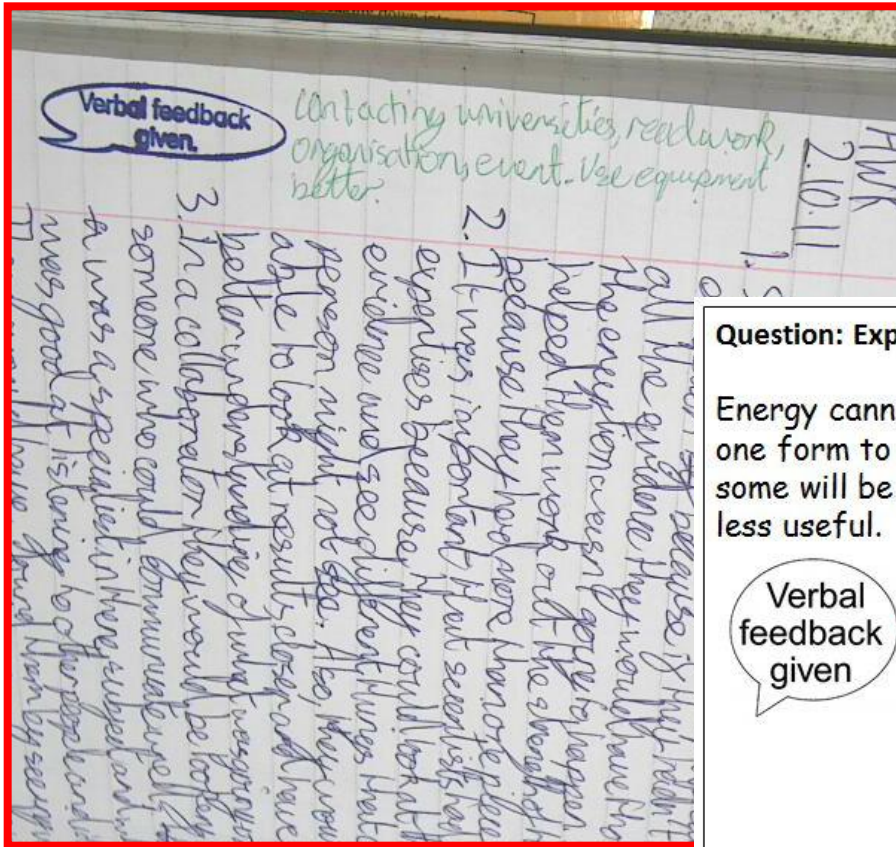 Verbal feedback
given.
contacting universities, read work,
organisation, event. Use equipment
better.
HWK
2.10.11
1. S
all the evidence they would have tho
the eruption wasn't going to happen
helped them work out the strength
because they had more than one piece
2. It was important that scientists had
expertises because, they could look at th
evidence and see different things that
person might not see. Also, they wou
able to look at results closer and have
better understanding of what was going on
3. In a collaborator they would be looking
someone who could communicate well
a was a specialist in there subject and w
was good at listening to other people and
Question: Exp
Energy cann
one form to
some will be
less useful.
Verbal
feedback
given